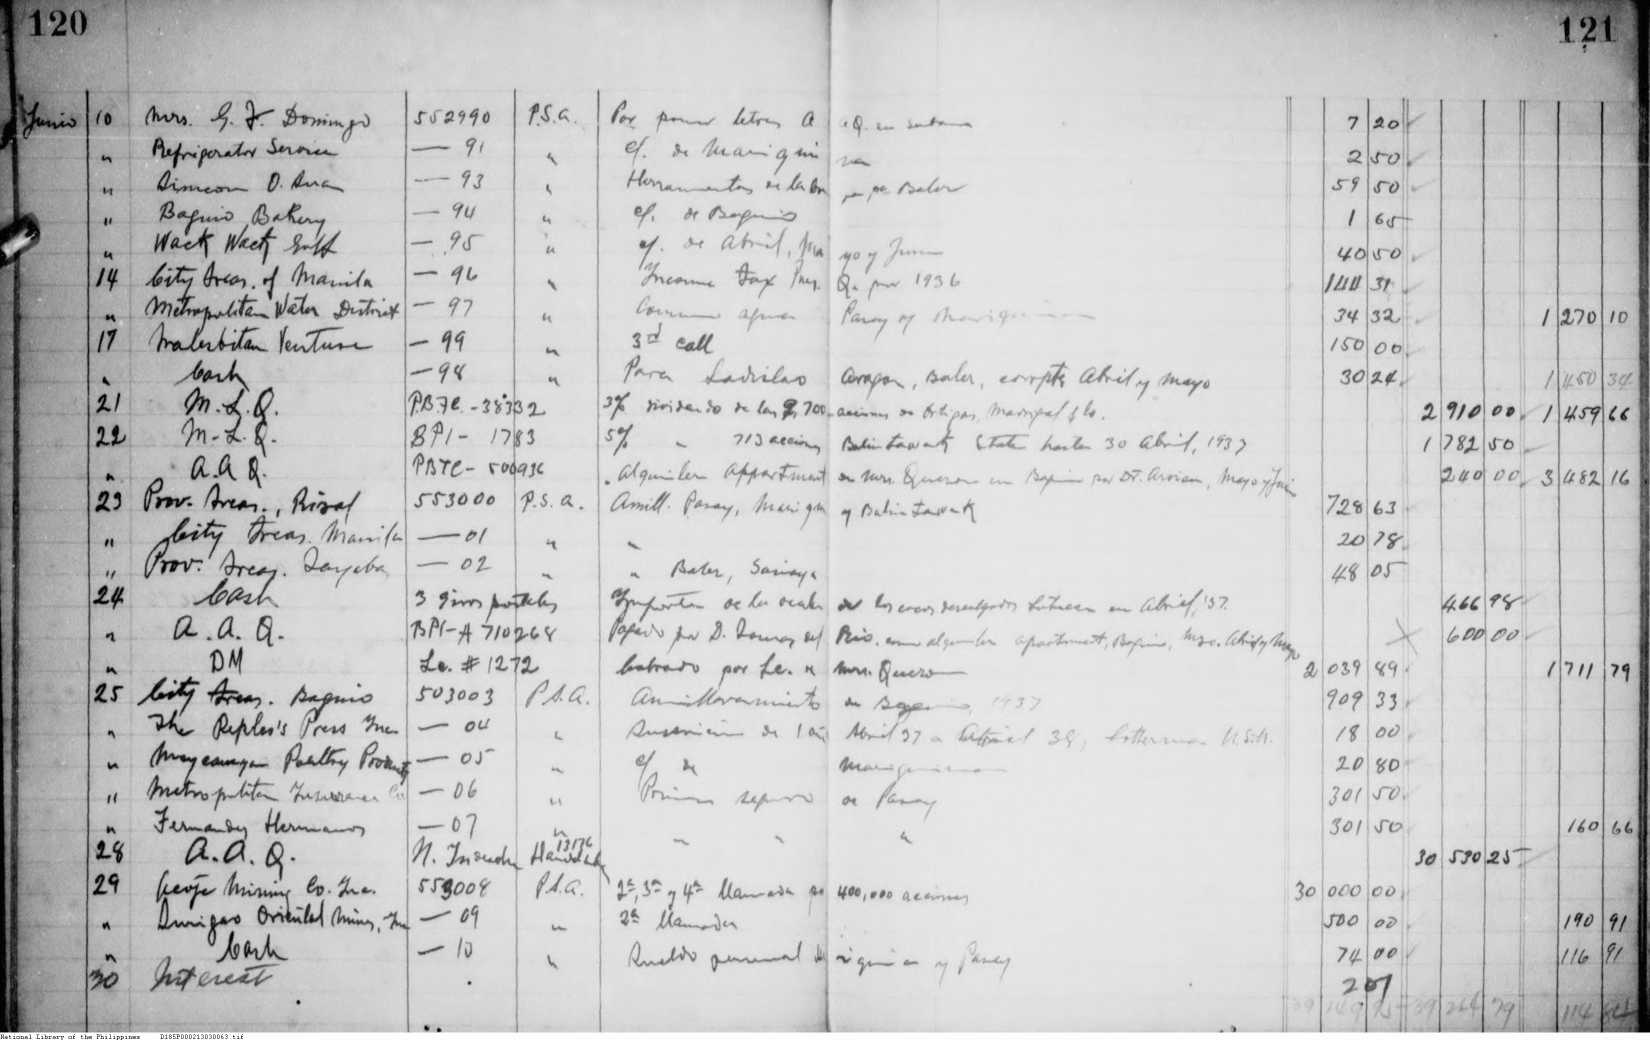 120 121
Junio 10 Mrs. G. F. Domingo 552990 P.S.A. Por poner letras A 7 20
" Refrigerator Service — 91 " c/. de Mariquina 2 50
" Simeon O. — 93 " Herramientas de Baler 59 50
" Baguio Bakery — 94 " c/. de Baguio 1 65
" Wack Wack Golf — 95 " c/. de Abril, Mayo y Junio 40 50
14 City Treas. of Manila — 96 " Income Tax M. Q. por 1936 144 31
" Metropolitan Water District — 97 " Consumo agua Pasay y Mariquina 34 32 1 270 10
17 Venture — 99 " 3rd call 150 00
" Cash — 98 " Para Ladislao Aragon, Baler, Abril y Mayo 30 24 1 450 34
21 M.L.Q. P.B.T.C. - 38332 3% dividendo de las 700 acciones de Ortigas, Madrigal & Co. 2 910 00 1 459 66
22 M-L.Q. BPI - 1783 5% " 713 acciones Balintawak Estate hasta 30 Abril, 1937 1 782 50
" A.A.Q. PBTC - 500936 Alquiler Appartment de Mrs. Quezon en Baguio por Dr. Mayo y Junio 240 00 3 482 16
23 Prov. Treas., Rizal 553000 P.S.A. Amill. Pasay, Mariquina y Balintawak 728 63
" City Treas. Manila — 01 " " 20 78
" Prov. Treas. Tayabas — 02 " " Baler, Sariaya 48 05
24 Cash 3 giros postales Importe de la de los cocos en Abril, '37. 466 98
" A.A.Q. BPI - A 710268 Pagado por D. Tomas del Rio, como alquiler apartment, Baguio, Mzo. Abril y Mayo 600 00
" DM Lc. # 1272 Cobrado por Lc. a Mrs. Quezon 2 039 89 1 711 79
25 City Treas. Baguio 503003 P.S.A. Amillaramiento de Baguio, 1937 909 33
" The Peoples's Press Inc — 04 " Suscricion de 1 año Abril 37 a Abril 38, 18 00
" Poultry Products — 05 " c/ de Mariquina 20 80
" Metropolitan Insurance Co — 06 " Primas seguro de Pasay 301 50
" Fernandez Hermanos — 07 " " " " 301 50 160 66
28 A.A.Q. 13176 30 530 25
29 Mining Co. Inc. 553008 P.S.A. 2ª, 3ª y 4ª llamada 400,000 acciones 30 000 00
" Surigao Oriental Mines, Inc — 09 " 2ª llamada 500 00 190 91
" Cash — 10 " Sueldo personal Mariquina y Pasay 74 00 116 91
30 Interest 2 07
National Library of the Philippines D185P000213030063.tif